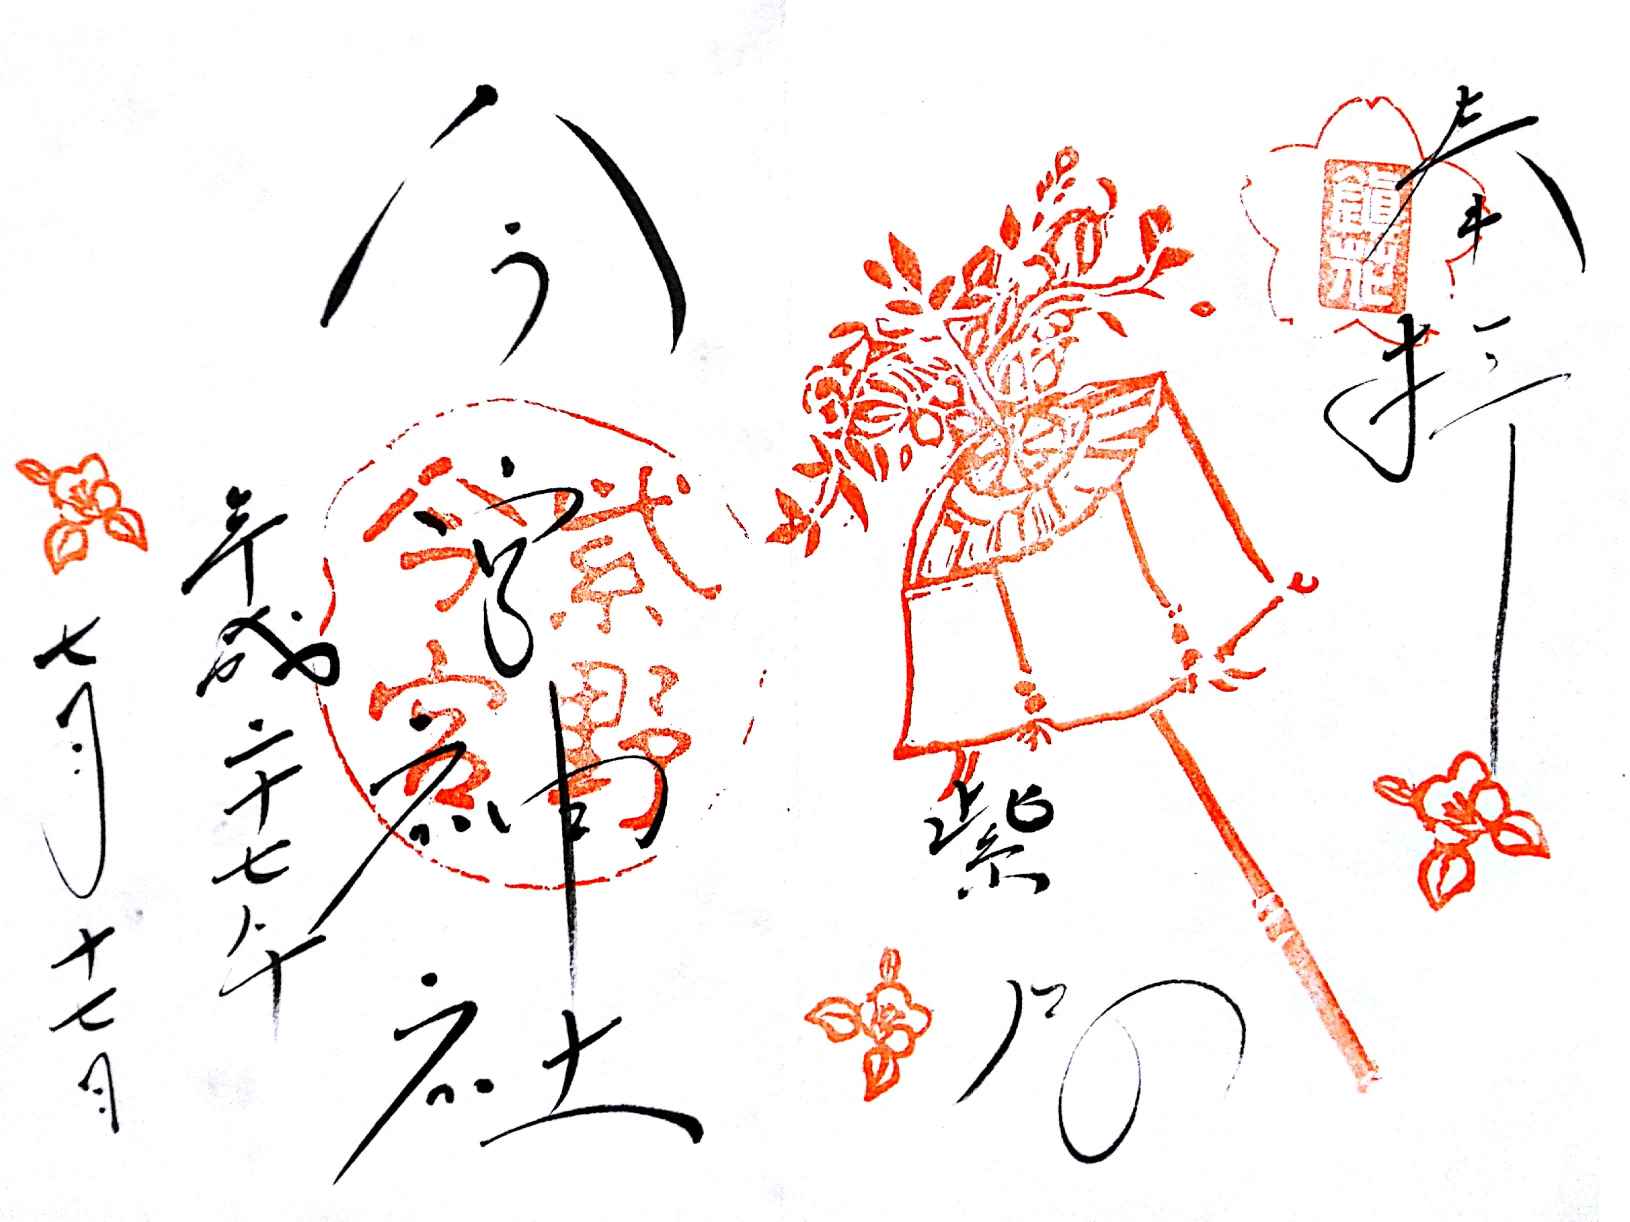 奉拝
鎮花
紫野
今宮神社
紫野
今宮
平成二十七年
七月十七日